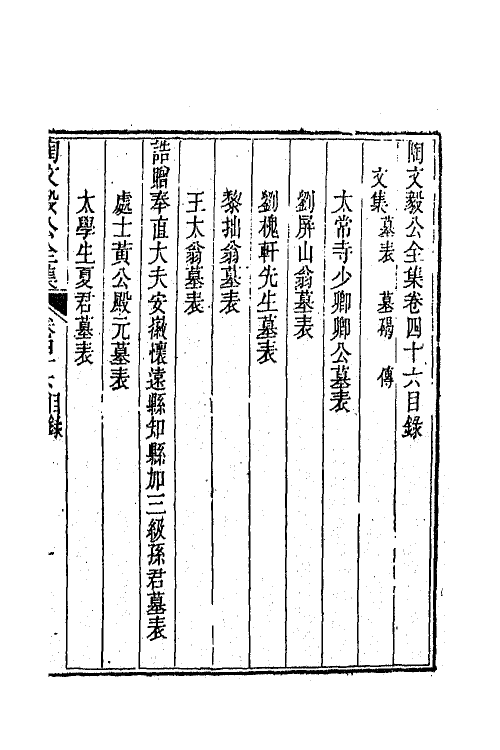 陶文毅公全集卷四十六目錄
文集 墓表 墓碣 傳
太常寺少卿卿公墓表
劉屏山翁墓表
劉槐軒先生墓表
黎拙翁墓表
王太翁墓表
誥贈奉直大夫安徽懷遠縣知縣加三級孫君墓表
處士黃公殿元墓表
太學生夏君墓表
陶文毅公全集 卷四十六目錄 一